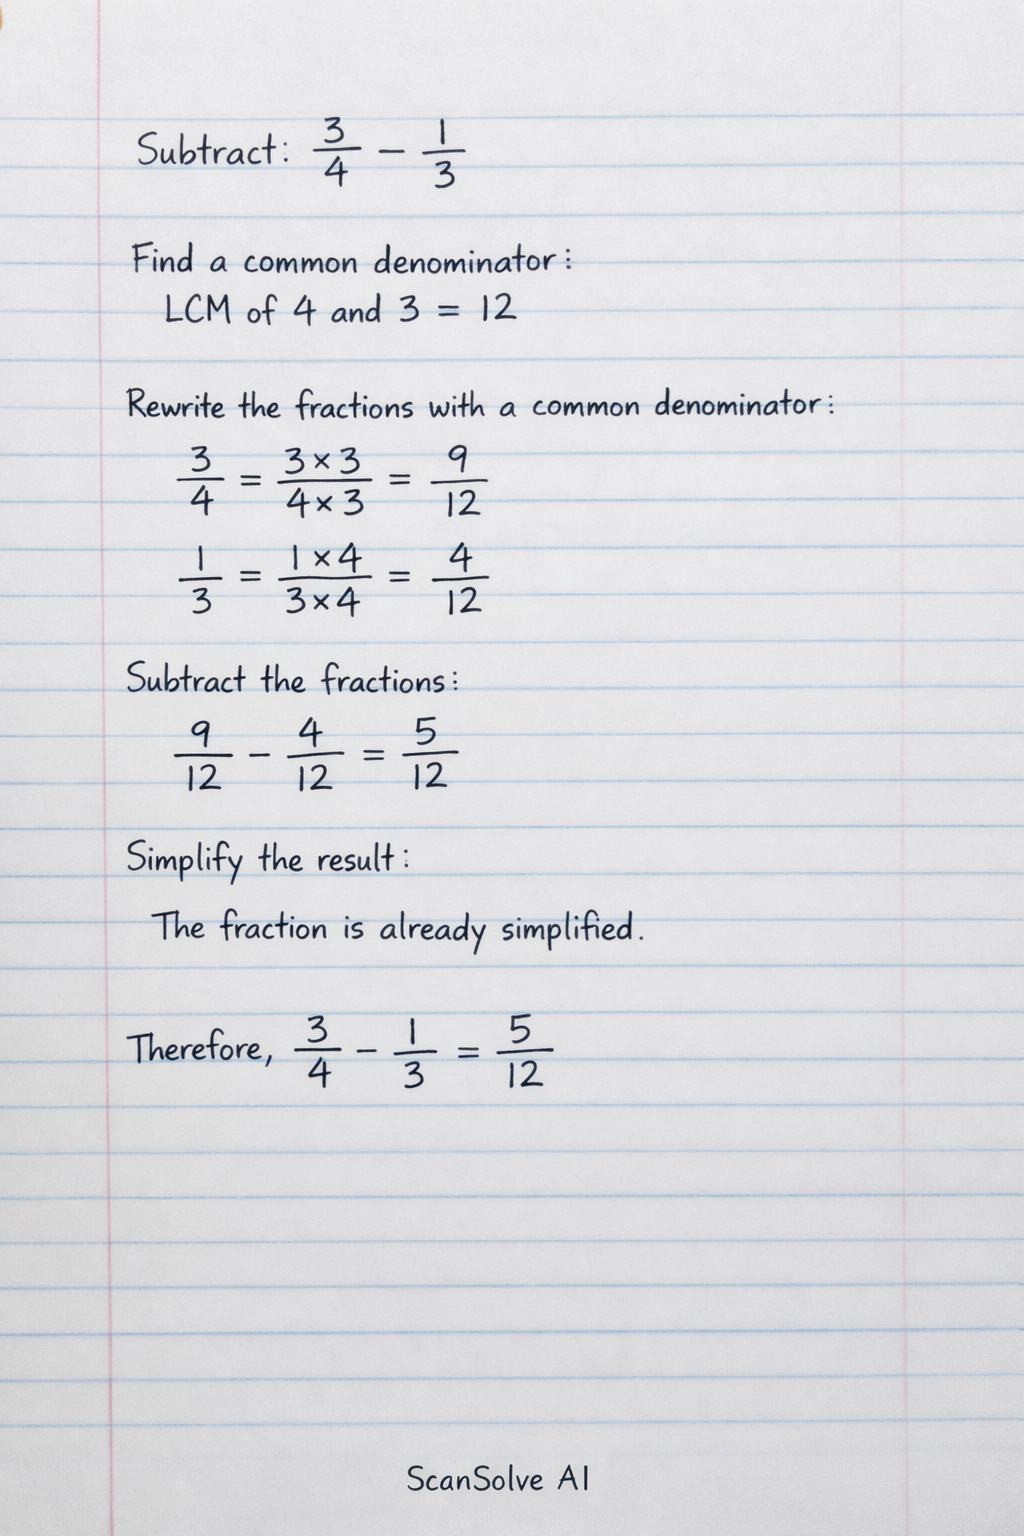 Subtract: 3/4 − 1/3
Find a common denominator:
LCM of 4 and 3 = 12
Rewrite the fractions with a common denominator:
3/4 = (3×3)/(4×3) = 9/12
1/3 = (1×4)/(3×4) = 4/12
Subtract the fractions:
9/12 − 4/12 = 5/12
Simplify the result:
The fraction is already simplified.
Therefore, 3/4 − 1/3 = 5/12
ScanSolve AI